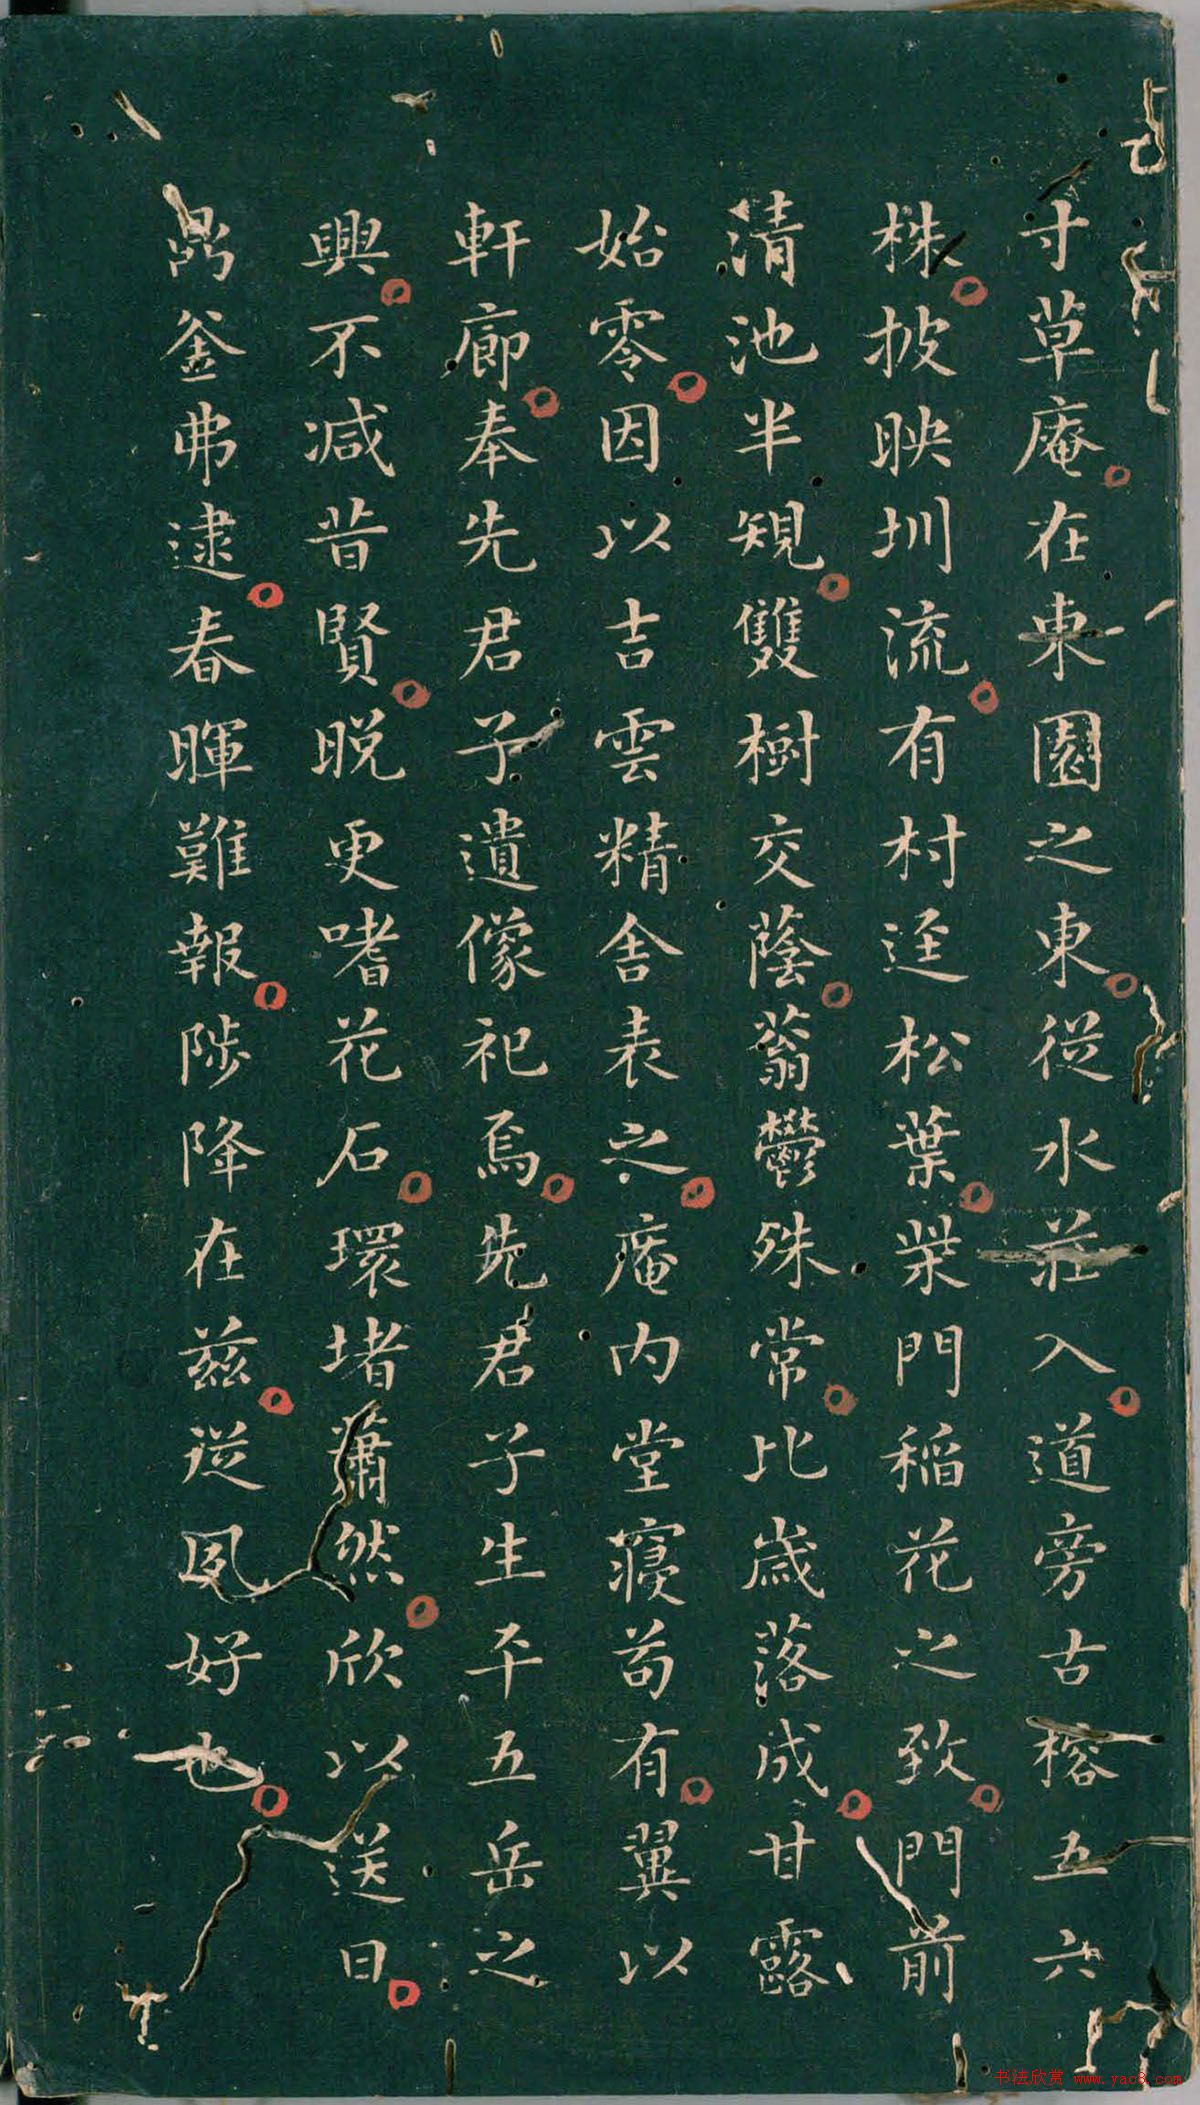 寸草庵在東園之東從水莊入道旁古榕五六
株披映圳流有村逕松葉柴門稻花之致門前
清池半規雙樹交蔭蓊鬱殊常比歲落成甘露
始零因以吉雲精舍表之庵内堂寢苟有翼以
軒廊奉先君子遺像祀焉先君子生平五岳之
興不减昔賢晚更嗜花石環堵蕭然欣以送日
鬴釜弗逮春暉難報陟降在兹從夙好也
书法欣赏 www.yac8.com